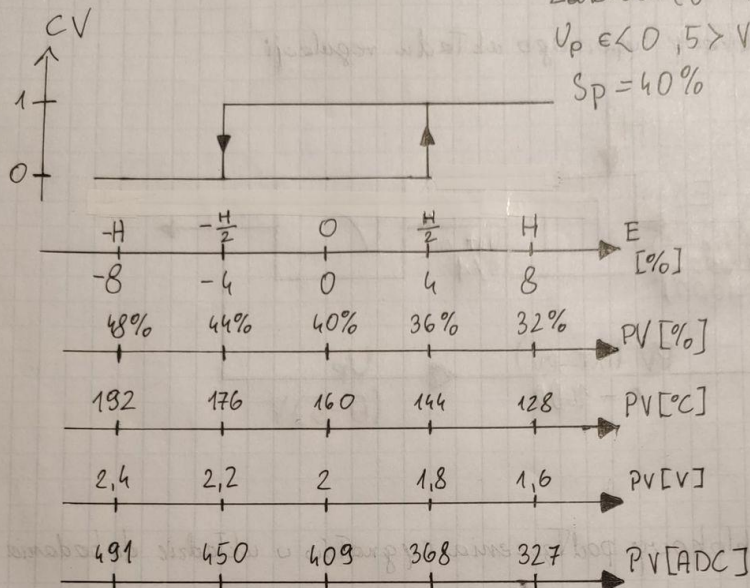 CV
Up ∈<0,5> V
Sp = 40%
1
0
-H -H/2 0 H/2 H E
-8 -4 0 4 8 [%]
48% 44% 40% 36% 32% PV[%]
192 176 160 144 128 PV[°C]
2,4 2,2 2 1,8 1,6 PV[V]
491 450 409 368 327 PV[ADC]